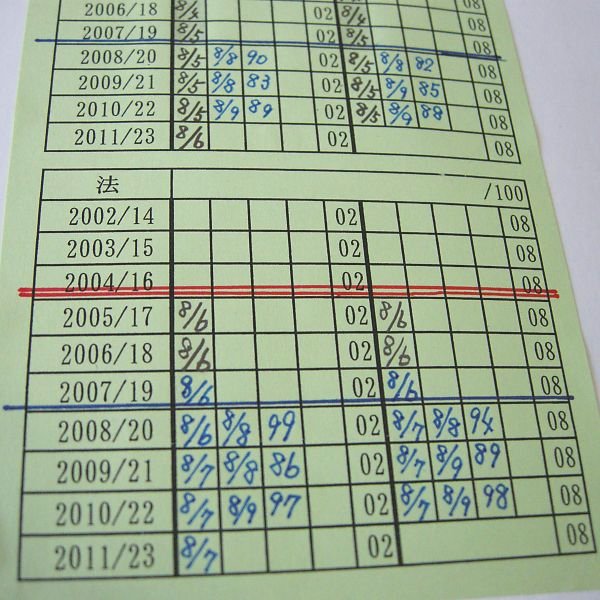 2006/18 8/4 02 8/4 08
2007/19 8/5 02 8/5 08
2008/20 8/5 8/8 90 02 8/5 8/8 82 08
2009/21 8/5 8/8 83 02 8/5 8/9 85 08
2010/22 8/5 8/9 89 02 8/5 8/9 88 08
2011/23 8/6 02 08
法 /100
2002/14 02 08
2003/15 02 08
2004/16 02 08
2005/17 8/6 02 8/6 08
2006/18 8/6 02 8/6 08
2007/19 8/6 02 8/6 08
2008/20 8/6 8/8 99 02 8/7 8/8 94 08
2009/21 8/7 8/8 86 02 8/7 8/9 89 08
2010/22 8/7 8/9 97 02 8/7 8/9 98 08
2011/23 8/7 02 08